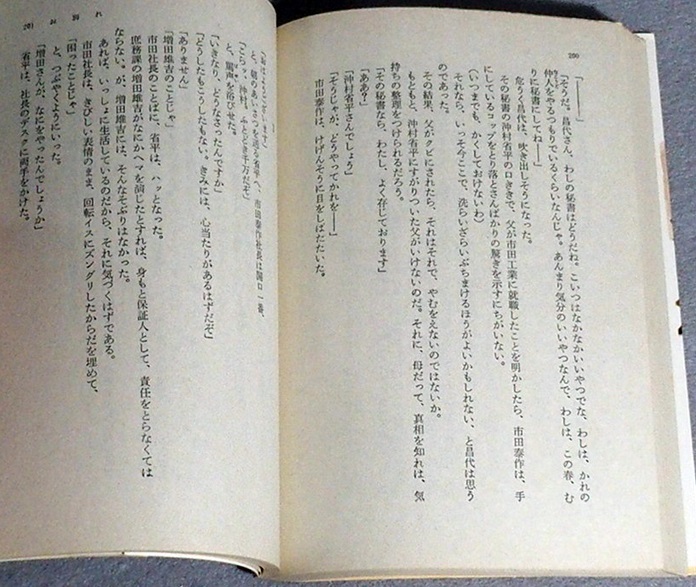 200
「————」
「そうだ。昌代さん、わしの秘書はどうだね。こいつはなかなかいいやつでな、わしは、かれの
仲人をやるつもりでいるくらいなんじゃ。あんまり気分のいいやつなんで、わしは、この春、む
りに秘書にしてね——」
危うく昌代は、吹き出しそうになった。
その秘書の沖村省平の口ききで、父が市田工業に就職したことを明かしたら、市田泰作は、手
にしているコップをとり落とさんばかりの驚きを示すにちがいない。
(いつまでも、かくしておけないわ)
それなら、いっそ今ここで、洗いざらいぶちまけるほうがよいかもしれない、と昌代は思う
のであった。
その結果、父がクビにされたら、それはそれで、やむをえないのではないか。
もともと、沖村省平にすがりついた父がいけないのだ。それに、母だって、真相を知れば、気
持ちの整理をつけられるだろう。
「その秘書なら、わたし、よく存じております」
「ああ?」
「沖村省平さんでしょう」
「そうじゃが、どうやってかれを——」
市田泰作は、けげんそうに目をしばたたいた。
と、朝のあいさつを送る省平へ、市田泰作社長は開口一番、
「こらッ、沖村、ふとどき千万だぞ」
と、罵声を浴びせた。
「いきなり、どうなさったんですか」
「どうしたもこうしたもない。きみには、心当たりがあるはずだぞ」
「ありません」
「増田雄吉のことじゃ」
市田社長のことばに、省平は、ハッとなった。
庶務課の増田雄吉がなにかヘマを演じたとすれば、身もと保証人として、責任をとらなくては
ならない。が、増田雄吉には、そんなそぶりはなかった。
あれば、いっしょに生活しているのだから、それに気づくはずである。
市田社長は、きびしい表情のまま、回転イスにズングリしたからだを埋めて、
「困ったことじゃ」
と、つぶやくようにいった。
「増田さんが、なにをやったんでしょうか」
省平は、社長のデスクに両手をかけた。
201